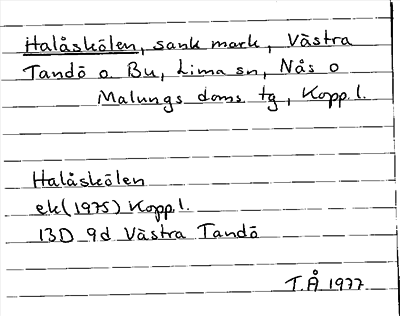 Halåskölen, sank mark, Västra
Tandö o Bu, Lima sn, Nås o
Malungs doms tg, Kopp.l.
Halåskölen
ek (1975) Kopp.l.
13D 9d Västra Tandö
T.Å 1977